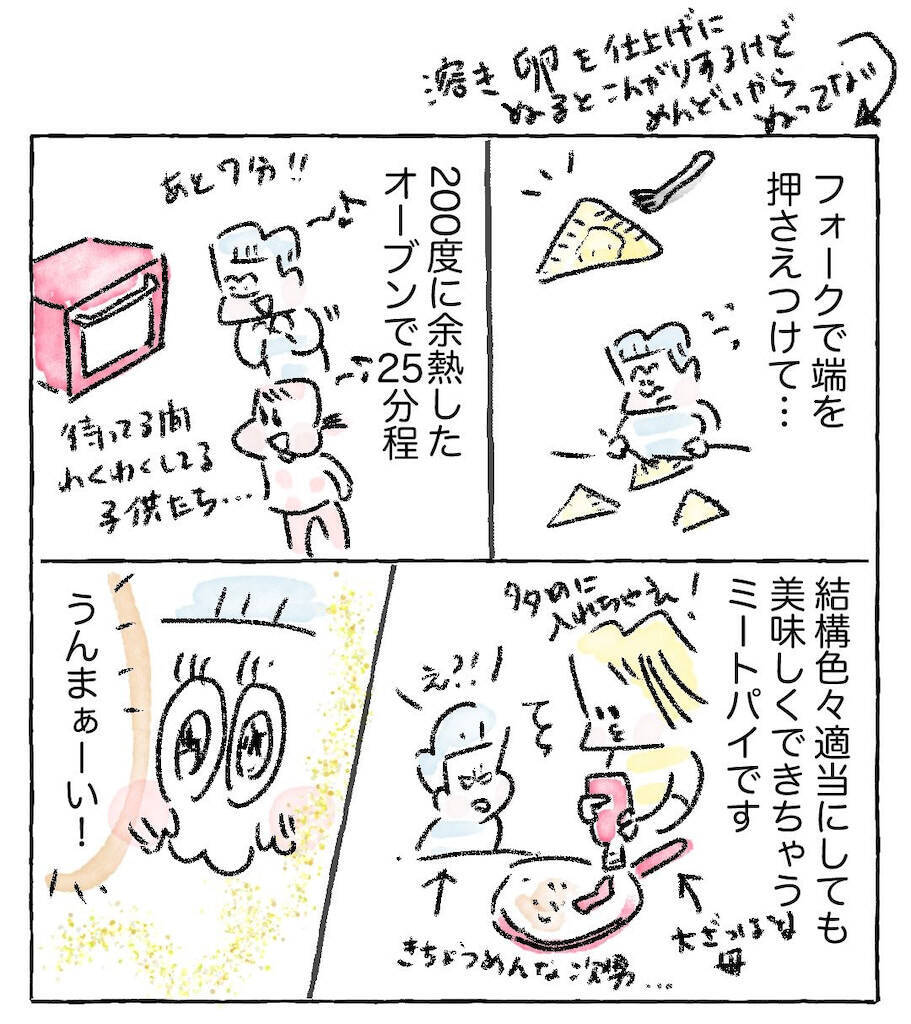 溶き卵を仕上げに
ぬるとこんがりするけど
めんどいから
ぬってない
フォークで端を
押さえつけて…
200度に余熱した
オーブンで25分程
あと7分!!
待ってる間
わくわくしてる
子供たち…
結構色々適当にしても
美味しくできちゃう
ミートパイです
多めに
入れちゃえ!
え?!
大ざっぱな
母
きちょうめんな次男…
うんまぁーい!